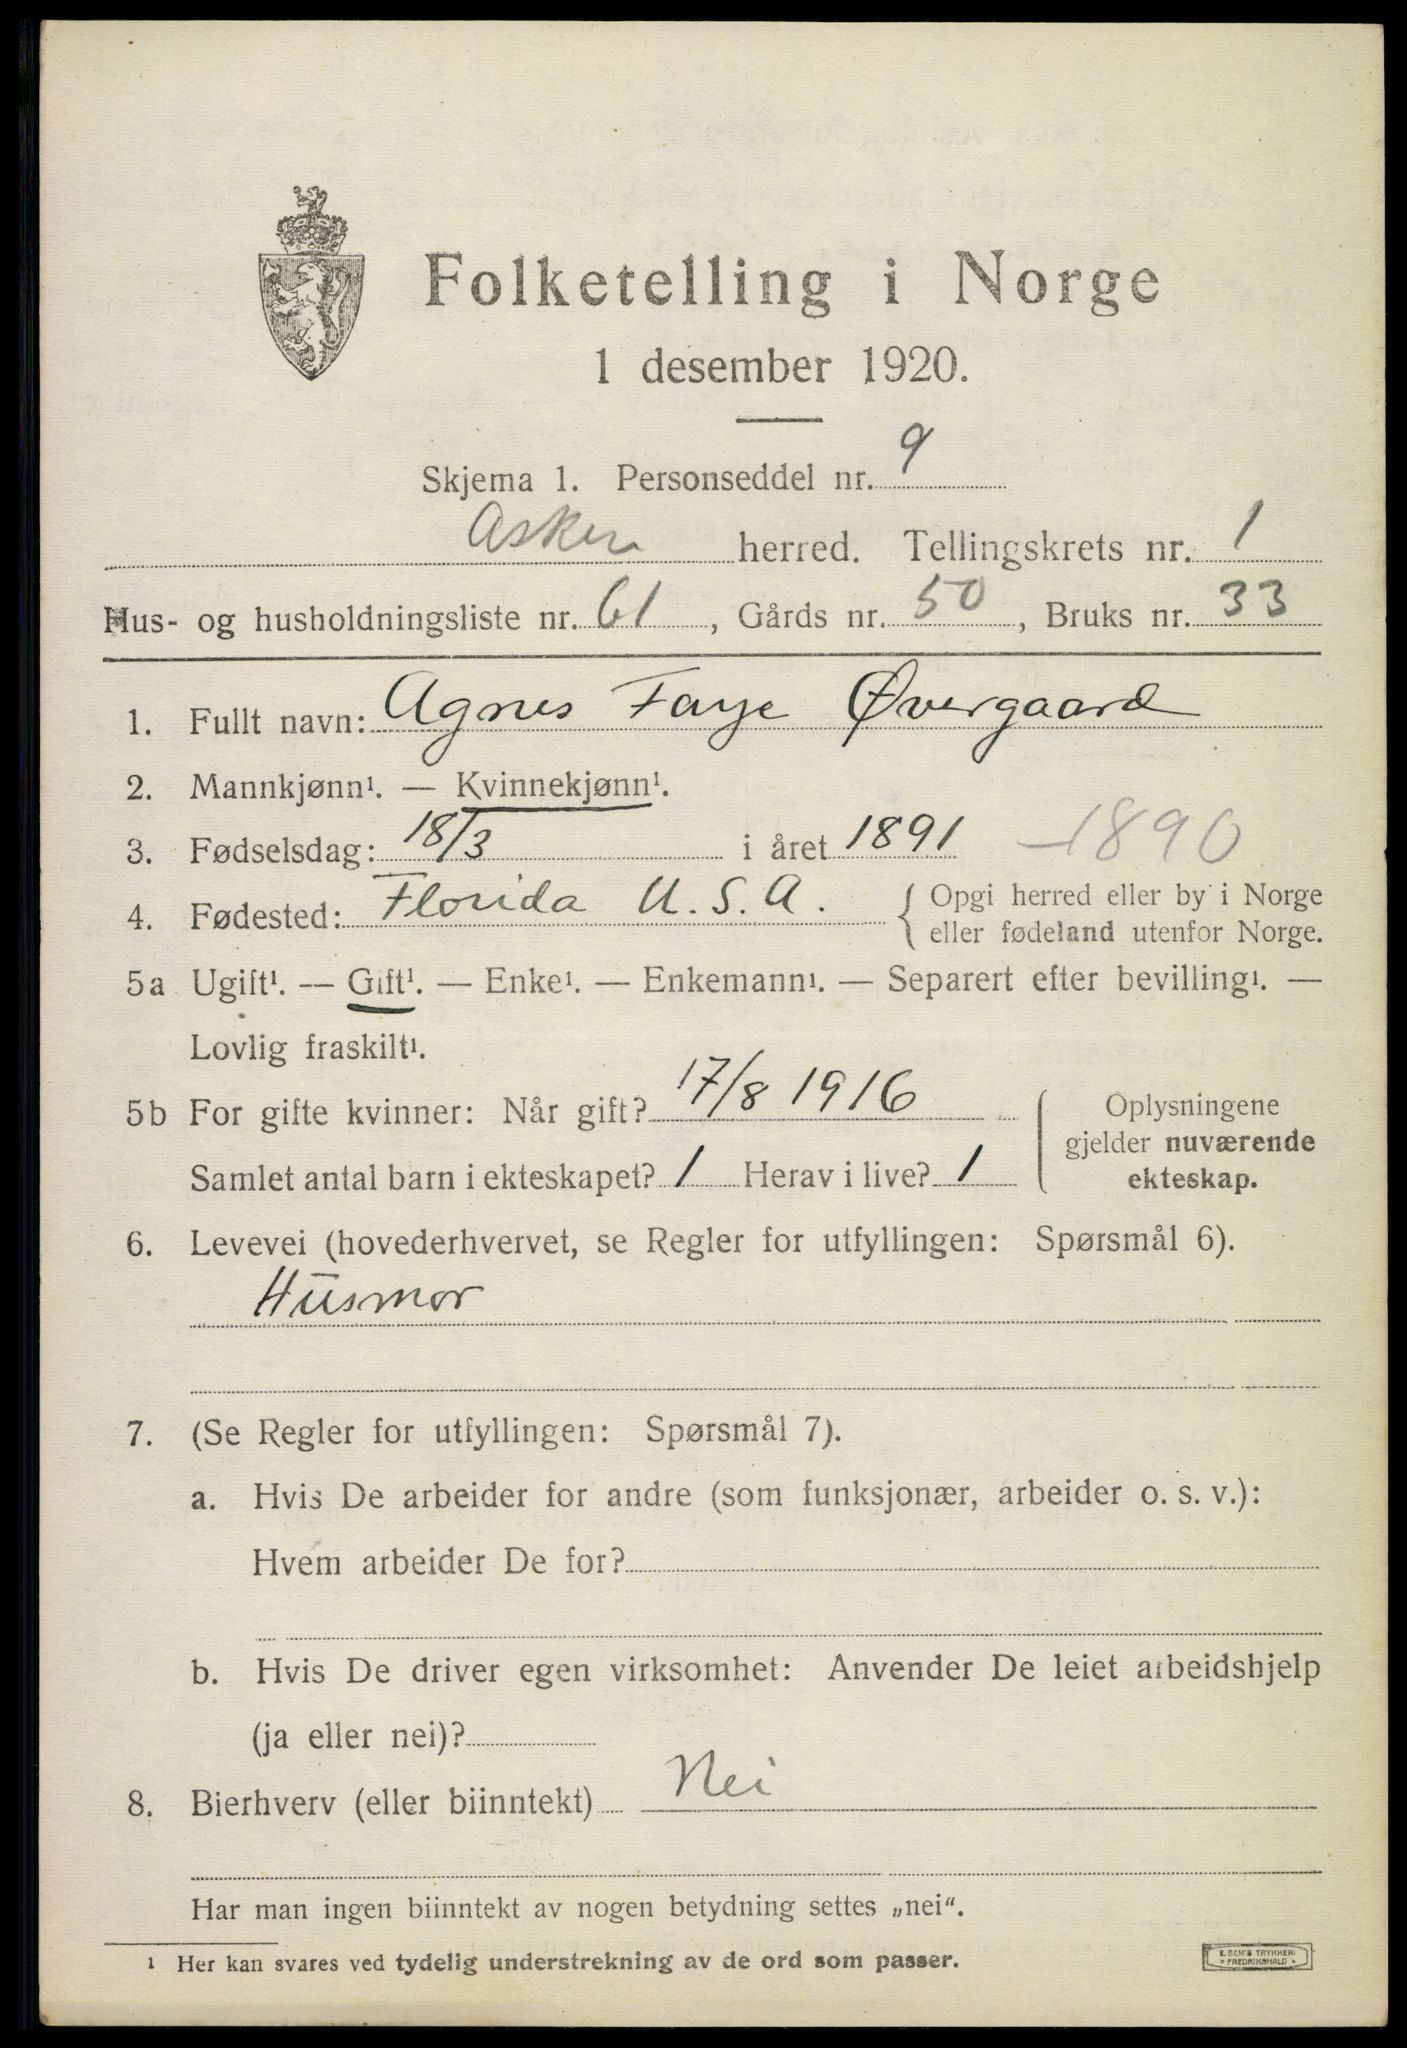 Folketelling i Norge
1 desember 1920.
Skjema 1. Personseddel nr. 9
Asker herred. Tellingskrets nr. 1
Hus- og husholdningsliste nr. 61, Gårds nr. 50, Bruks nr. 33
1. Fullt navn: Agnes Faye Øvergaard
2. Mannkjønn¹. — Kvinnekjønn¹.
3. Fødselsdag: 18/3 i året 1891 -1890
4. Fødested: Florida U.S.A. { Opgi herred eller by i Norge
eller fødeland utenfor Norge.
5a Ugift¹. — Gift¹. — Enke¹. — Enkemann¹. — Separert efter bevilling¹. —
Lovlig fraskilt¹.
5b For gifte kvinner: Når gift? 17/8 1916
Samlet antal barn i ekteskapet? 1 Herav i live? 1
Oplysningene
gjelder nuværende
ekteskap.
6. Levevei (hovederhvervet, se Regler for utfyllingen: Spørsmål 6).
Husmor
7. (Se Regler for utfyllingen: Spørsmål 7).
a. Hvis De arbeider for andre (som funksjonær, arbeider o. s. v.):
Hvem arbeider De for?
b. Hvis De driver egen virksomhet: Anvender De leiet arbeidshjelp
(ja eller nei)?
8. Bierhverv (eller biinntekt) Nei
Har man ingen biinntekt av nogen betydning settes „nei“.
1 Her kan svares ved tydelig understrekning av de ord som passer.
E. SEM'S TRYKKERI
* FREDRIKSHALD *